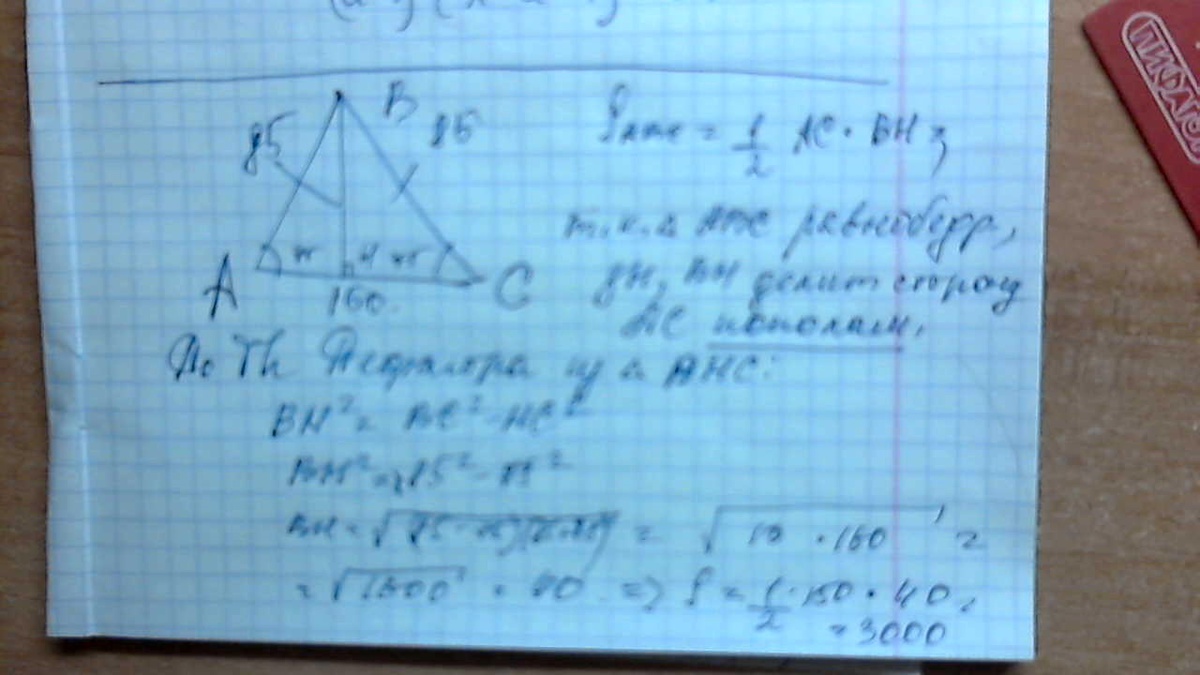 B
85
85
A
H
C
150
S = 1/2 AC · BH;
т.к. Δ равнобедр,
BH делит сторону
AC пополам.
По Th Пифагора из Δ
BH² = BC² - HC²
BH² = 85² - 75²
BH = √(85-75)(85+75) = √10 · 160 =
= √1600 = 40 => S = 1/2 · 150 · 40 =
= 3000
ПИФАГОР